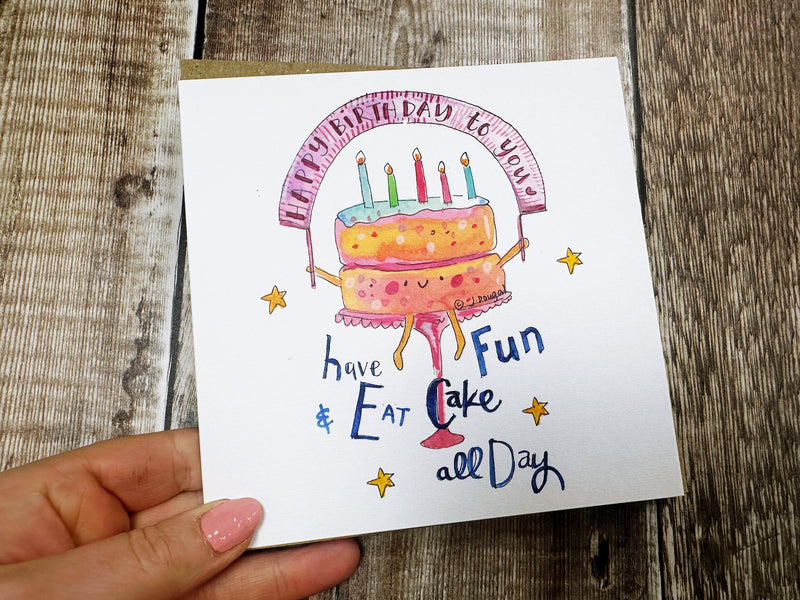 HAPPY BIRTHDAY to you
© J.Dougal
have Fun
& EAT Cake
all Day